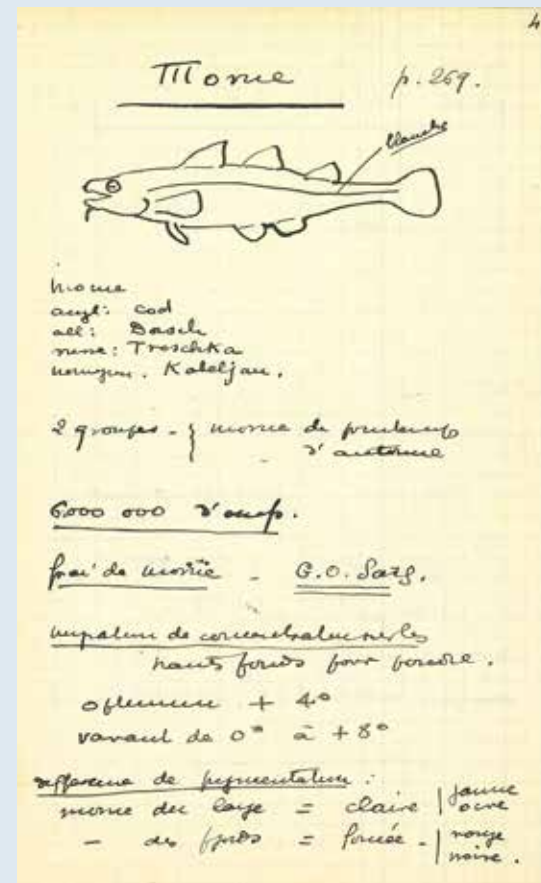 4
Morue p. 269.
blanche
morue
angl: cod
all: Dasch
russe: Treschka
norvégien. Kabeljau.
2 groupes - { morue de printemps
- d'automne
6000 000 d'oeufs.
frai de morue - G.O. Sars.
migration de concentration sur les
hauts fonds pour pondre.
optimum + 4°
variant de 0° à +8°
différence de pigmentation :
morue du large = claire | jaune
ocre
- des fjords = foncée - | rouge
noire.